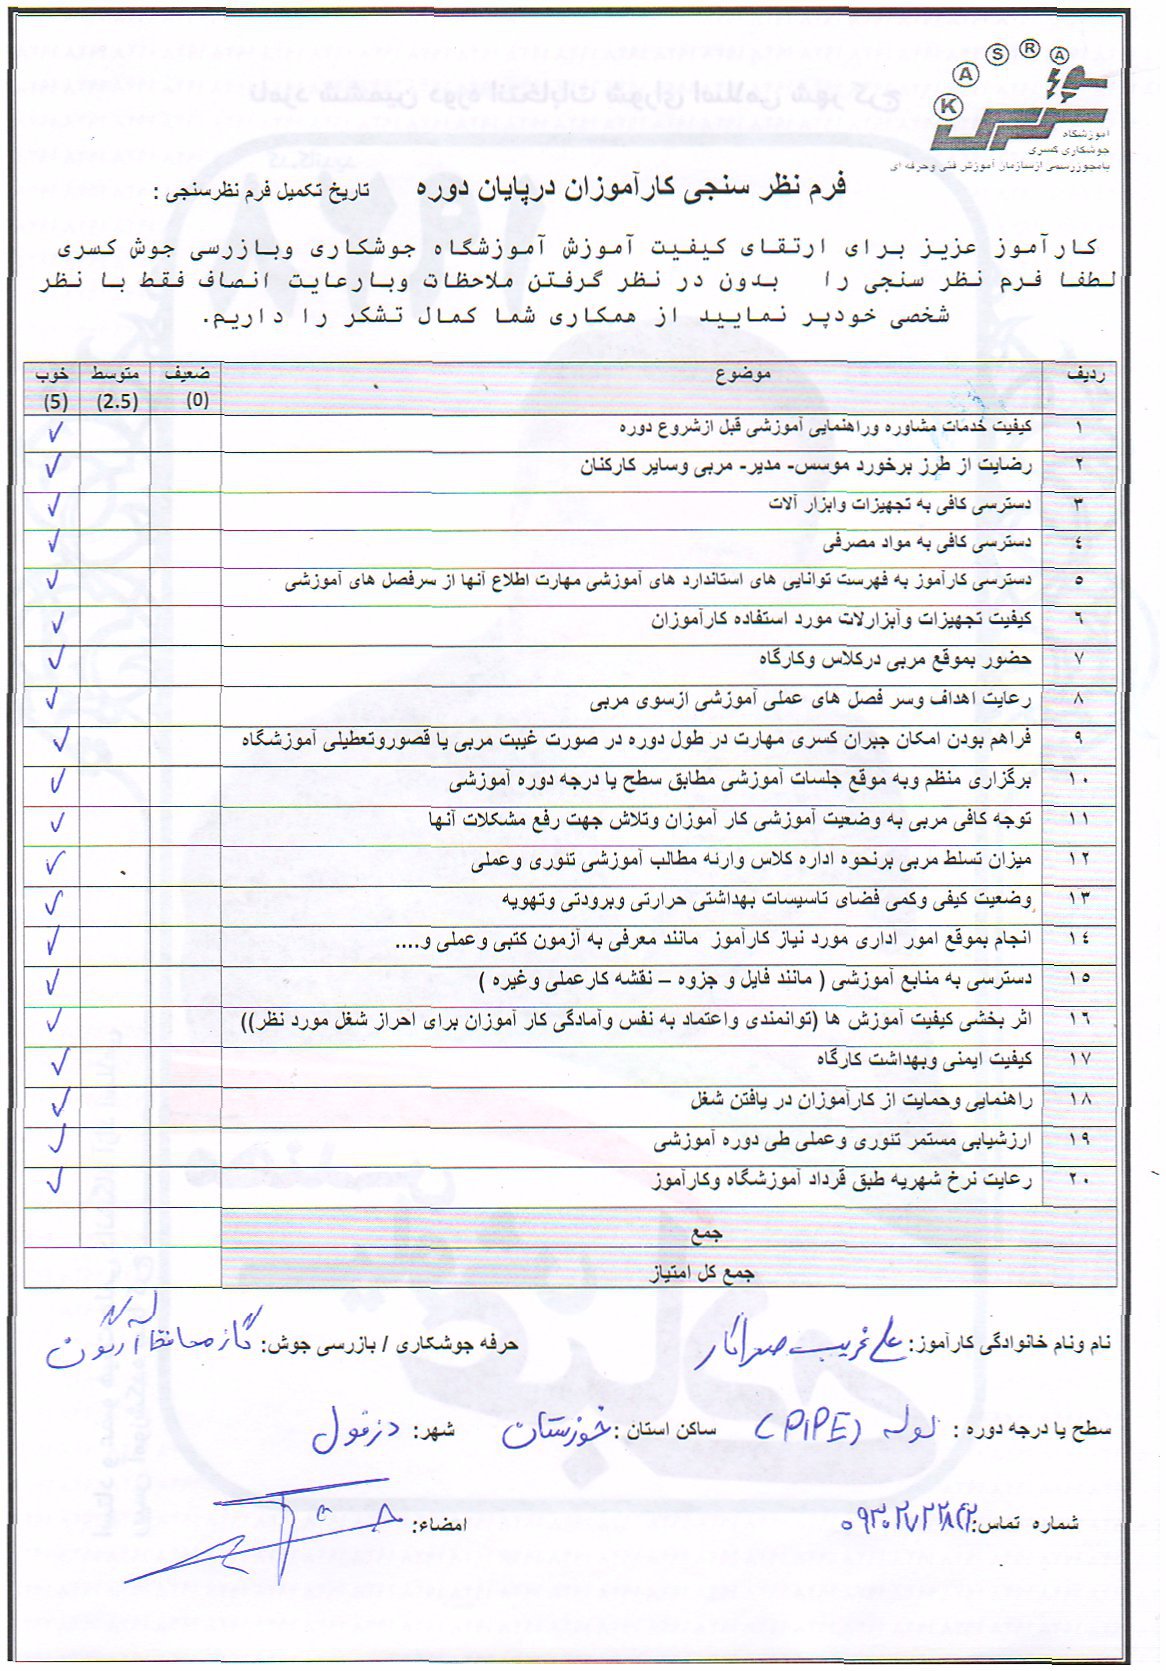 KASRA
آموزشگاه
جوشکاری کسری
بامجوزرسمی ازسازمان آموزش فنی وحرفه ای
فرم نظر سنجی کارآموزان درپایان دوره تاریخ تکمیل فرم نظرسنجی :
کارآموز عزیز برای ارتقای کیفیت آموزش آموزشگاه جوشکاری وبازرسی جوش کسری
لطفا فرم نظر سنجی را بدون در نظر گرفتن ملاحظات وبارعایت انصاف فقط با نظر
شخصی خودپر نمایید از همکاری شما کمال تشکر را داریم.
ردیف موضوع ضعیف (0) متوسط (2.5) خوب (5)
١ کیفیت خدمات مشاوره وراهنمایی آموزشی قبل ازشروع دوره ✓
٢ رضایت از طرز برخورد موسس- مدیر- مربی وسایر کارکنان ✓
٣ دسترسی کافی به تجهیزات وابزار آلات ✓
٤ دسترسی کافی به مواد مصرفی ✓
٥ دسترسی کارآموز به فهرست توانایی های استاندارد های آموزشی مهارت اطلاع آنها از سرفصل های آموزشی ✓
٦ کیفیت تجهیزات وآبزارلات مورد استفاده کارآموزان ✓
٧ حضور بموقع مربی درکلاس وکارگاه ✓
٨ رعایت اهداف وسر فصل های عملی آموزشی ازسوی مربی ✓
٩ فراهم بودن امکان جبران کسری مهارت در طول دوره در صورت غیبت مربی یا قصوروتعطیلی آموزشگاه ✓
١٠ برگزاری منظم وبه موقع جلسات آموزشی مطابق سطح یا درجه دوره آموزشی ✓
١١ توجه کافی مربی به وضعیت آموزشی کار آموزان وتلاش جهت رفع مشکلات آنها ✓
١٢ میزان تسلط مربی برنحوه اداره کلاس وارئه مطالب آموزشی تئوری وعملی ✓
١٣ وضعیت کیفی وکمی فضای تاسیسات بهداشتی حرارتی وبرودتی وتهویه ✓
١٤ انجام بموقع امور اداری مورد نیاز کارآموز مانند معرفی به آزمون کتبی وعملی و.... ✓
١٥ دسترسی به منابع آموزشی ( مانند فایل و جزوه – نقشه کارعملی وغیره ) ✓
١٦ اثر بخشی کیفیت آموزش ها (توانمندی واعتماد به نفس وآمادگی کار آموزان برای احراز شغل مورد نظر)) ✓
١٧ کیفیت ایمنی وبهداشت کارگاه ✓
١٨ راهنمایی وحمایت از کارآموزان در یافتن شغل ✓
١٩ ارزشیابی مستمر تئوری وعملی طی دوره آموزشی ✓
٢٠ رعایت نرخ شهریه طبق قرداد آموزشگاه وکارآموز ✓
جمع
جمع کل امتیاز
نام ونام خانوادگی کارآموز: علی غریب صحراکار حرفه جوشکاری / بازرسی جوش: گاز محافظ آرگون
سطح یا درجه دوره : لوله (PIPE) ساکن استان : خوزستان شهر: دزفول
شماره تماس: امضاء: